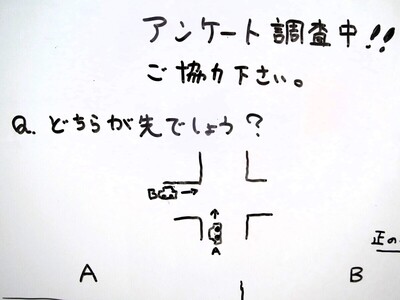 アンケート調査中!!
ご協力下さい。
Q. どちらが先でしょう?
B
A
正の
A
B